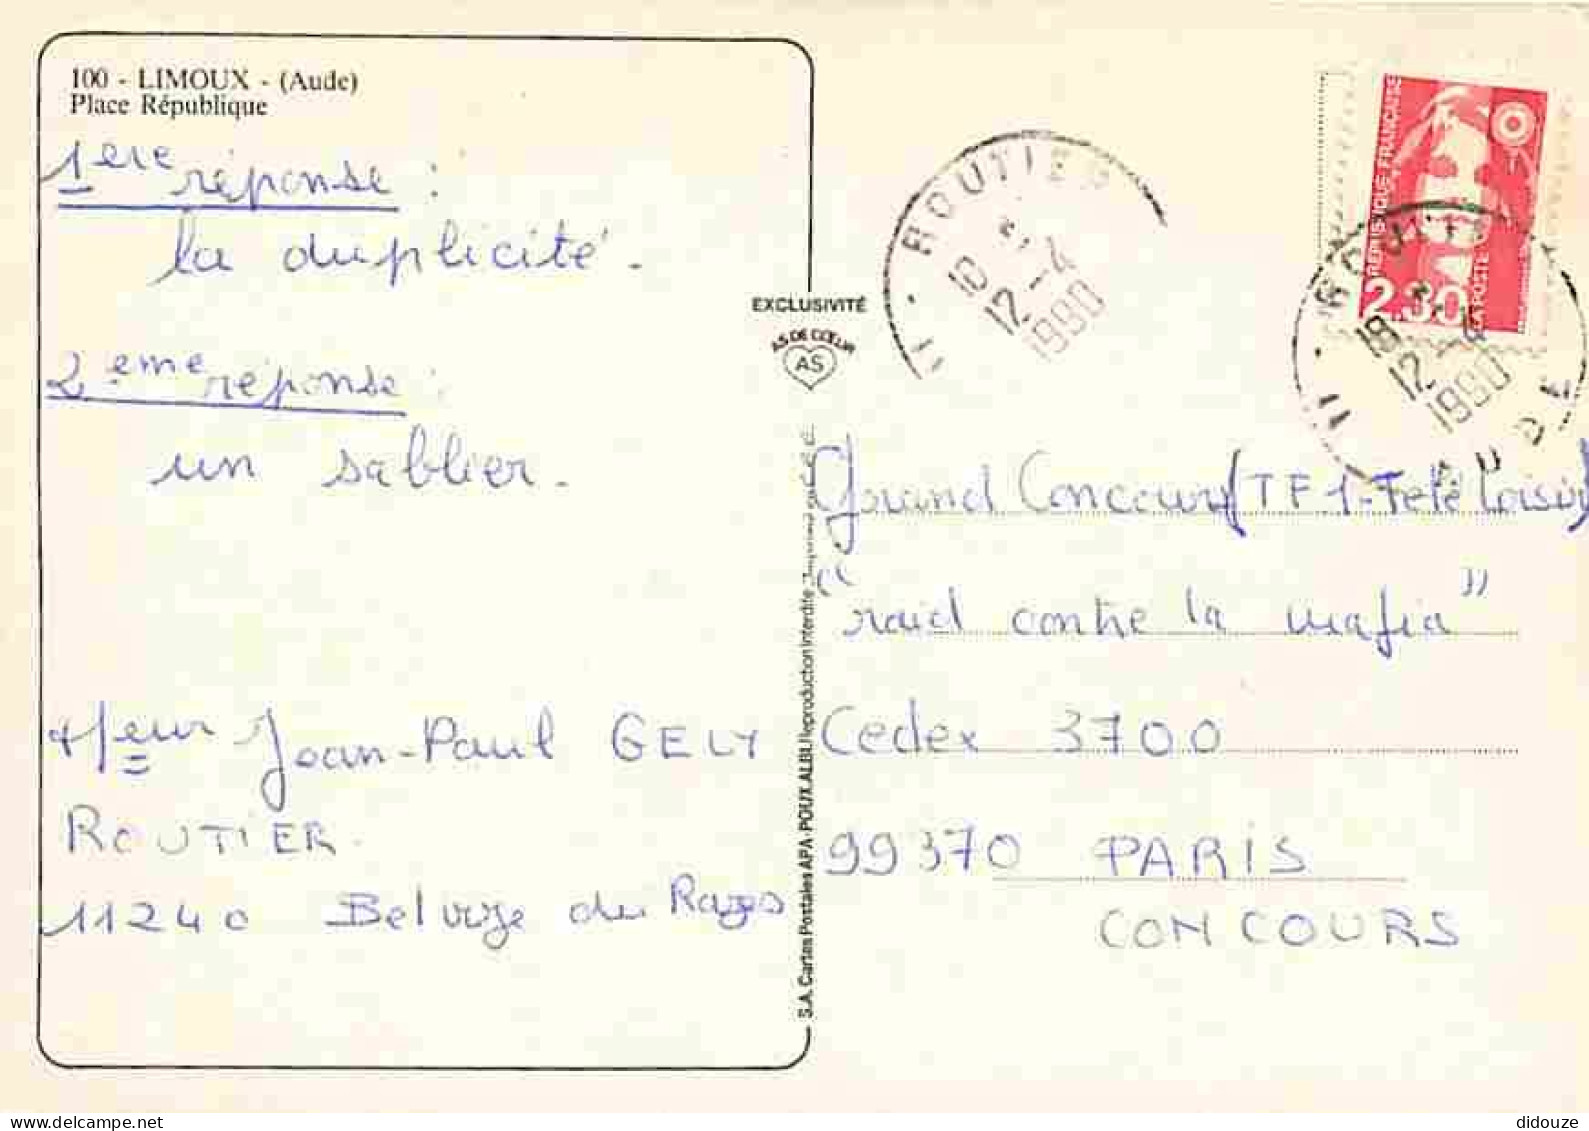 100 - LIMOUX - (Aude)
Place République
1ere réponse :
la duplicité.
2eme réponse :
un sablier.
Jean-Paul GELY
ROUTIER
11240 Belvèze du Razès
EXCLUSIVITÉ
AS DE CŒUR
AS
S.A. Cartes Postales APA-POUX ALBI Reproduction Interdite
11 - ROUTIER
10 H
12-4
1990
REPUBLIQUE FRANÇAISE
2.30
LA POSTE
11 - ROUTIER
18 H
12 - 4
1990
AUDE
Grand Concours (TF1-Télé Loisirs)
"raid contre la mafia"
Cedex 3700
99370 PARIS
CONCOURS
didouze